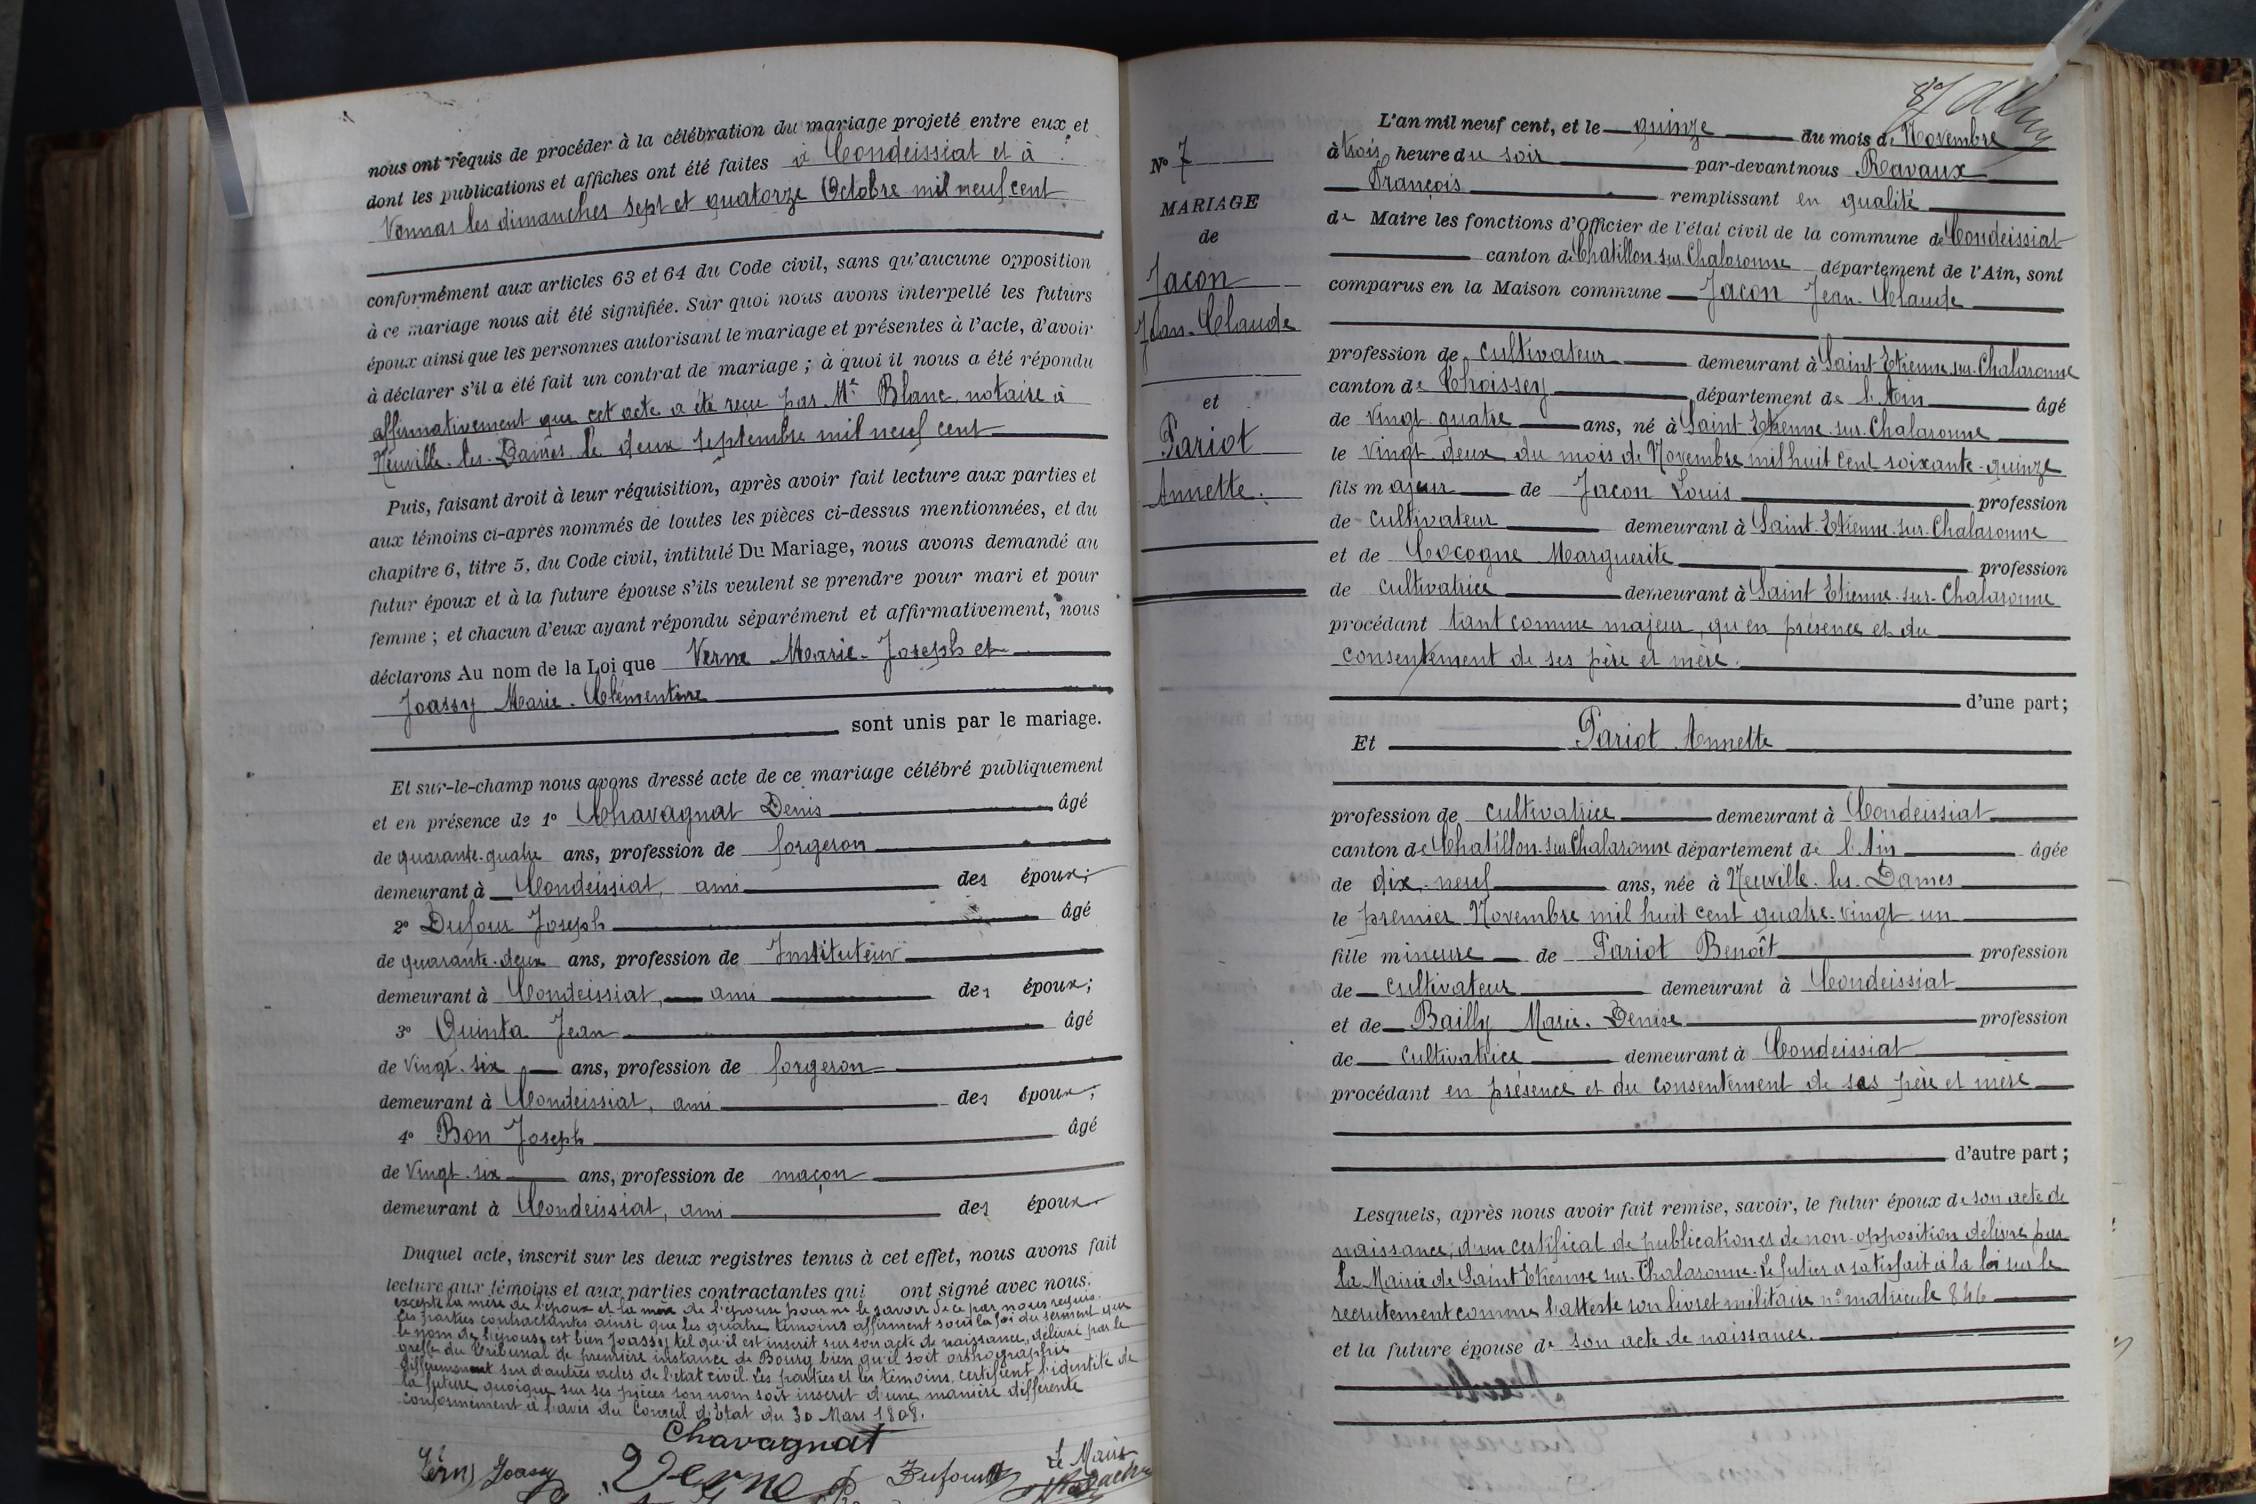 nous ont requis de procéder à la célébration du mariage projeté entre eux et
dont les publications et affiches ont été faites à Condeissiat et à
Vonnas les dimanches sept et quatorze Octobre mil neuf cent
conformément aux articles 63 et 64 du Code civil, sans qu'aucune opposition
à ce mariage nous ait été signifiée. Sur quoi nous avons interpellé les futurs
époux ainsi que les personnes autorisant le mariage et présentes à l'acte, d'avoir
à déclarer s'il a été fait un contrat de mariage ; à quoi il nous a été répondu
affirmativement que cet acte a été reçu par Me Blanc, notaire à
Neuville-les-Dames le deux septembre mil neuf cent
Puis, faisant droit à leur réquisition, après avoir fait lecture aux parties et
aux témoins ci-après nommés de toutes les pièces ci-dessus mentionnées, et du
chapitre 6, titre 5, du Code civil, intitulé Du Mariage, nous avons demandé au
futur époux et à la future épouse s'ils veulent se prendre pour mari et pour
femme ; et chacun d'eux ayant répondu séparément et affirmativement, nous
déclarons Au nom de la Loi que Verne Marie-Joseph et
Joassy Marie-Clémentine
sont unis par le mariage.
Et sur-le-champ nous avons dressé acte de ce mariage célébré publiquement
et en présence de 1° Chavagnat Denis âgé
de quarante-quatre ans, profession de forgeron
demeurant à Condeissiat, ami des époux;
2° Dufour Joseph âgé
de quarante-deux ans, profession de Instituteur
demeurant à Condeissiat, ami des époux;
3° Quinta Jean âgé
de Vingt-six ans, profession de forgeron
demeurant à Condeissiat, ami des époux;
4° Bon Joseph âgé
de Vingt-six ans, profession de maçon
demeurant à Condeissiat, ami des époux
Duquel acte, inscrit sur les deux registres tenus à cet effet, nous avons fait
lecture aux témoins et aux parties contractantes qui ont signé avec nous.
excepté la mère de l'époux et la mère de l'épouse pour ne le savoir de ce par nous requis.
Les parties contractantes ainsi que les quatre témoins affirment sous la foi du serment que
le nom de l'épouse est bien Joassy tel qu'il est inscrit sur son acte de naissance, délivré par le
greffe du tribunal de première instance de Bourg bien qu'il soit orthographié
différemment sur d'autres actes de l'état civil. Les parties et les témoins certifient l'identité de
la future quoique sur ses pièces son nom soit inscrit d'une manière différente
conformément à l'avis du Conseil d'Etat du 30 Mars 1808.
Chavagnat
Joassy Verne Dufour Le Maire
Ravaux
87
N° 7
MARIAGE
de
Jacon
Jean-Claude
et
Pariot
Annette.
L'an mil neuf cent, et le quinze du mois de Novembre
à trois heure du soir par-devant nous Ravaux
François remplissant en qualité
de Maire les fonctions d'Officier de l'état civil de la commune de Condeissiat
canton de Chatillon-sur-Chalaronne département de l'Ain, sont
comparus en la Maison commune Jacon Jean-Claude
profession de cultivateur demeurant à Saint-Etienne-sur-Chalaronne
canton de Thoissey département de l'Ain âgé
de vingt-quatre ans, né à Saint-Etienne-sur-Chalaronne
le vingt-deux du mois de Novembre mil huit cent soixante-quinze
fils majeur de Jacon Louis profession
de cultivateur demeurant à Saint-Etienne-sur-Chalaronne
et de Cocogne Marguerite profession
de cultivatrice demeurant à Saint Etienne-sur-Chalaronne
procédant tant comme majeur, qu'en présence et du
consentement de ses père et mère.
d'une part;
Et Pariot Annette
profession de cultivatrice demeurant à Condeissiat
canton de Chatillon-sur-Chalaronne département de l'Ain âgée
de dix-neuf ans, née à Neuville-les-Dames
le premier Novembre mil huit cent quatre-vingt un
fille mineure de Pariot Benoît profession
de cultivateur demeurant à Condeissiat
et de Bailly Marie-Denise profession
de cultivatrice demeurant à Condeissiat
procédant en présence et du consentement de ses père et mère
d'autre part ;
Lesquels, après nous avoir fait remise, savoir, le futur époux de son acte de
naissance, d'un certificat de publication et de non-opposition délivré par
la Mairie de Saint-Etienne-sur-Chalaronne. Le futur a satisfait à la loi sur le
recrutement comme l'atteste son livret militaire n° matricule 846
et la future épouse de son acte de naissance.